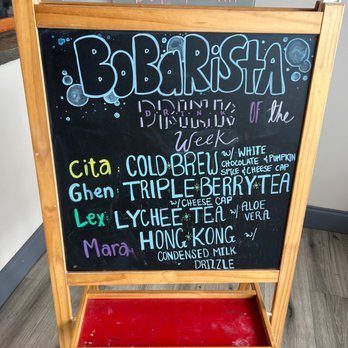 BOBARISTA
DRINK OF the
Week
Cita: COLD BREW w/ WHITE
CHOCOLATE & PUMPKIN
SPICE & CHEESE CAP
Ghen: TRIPLE BERRY TEA
w/ CHEESE CAP
Lex: LYCHEE TEA w/ ALOE
VERA
Mara: HONG KONG w/
CONDENSED MILK
DRIZZLE